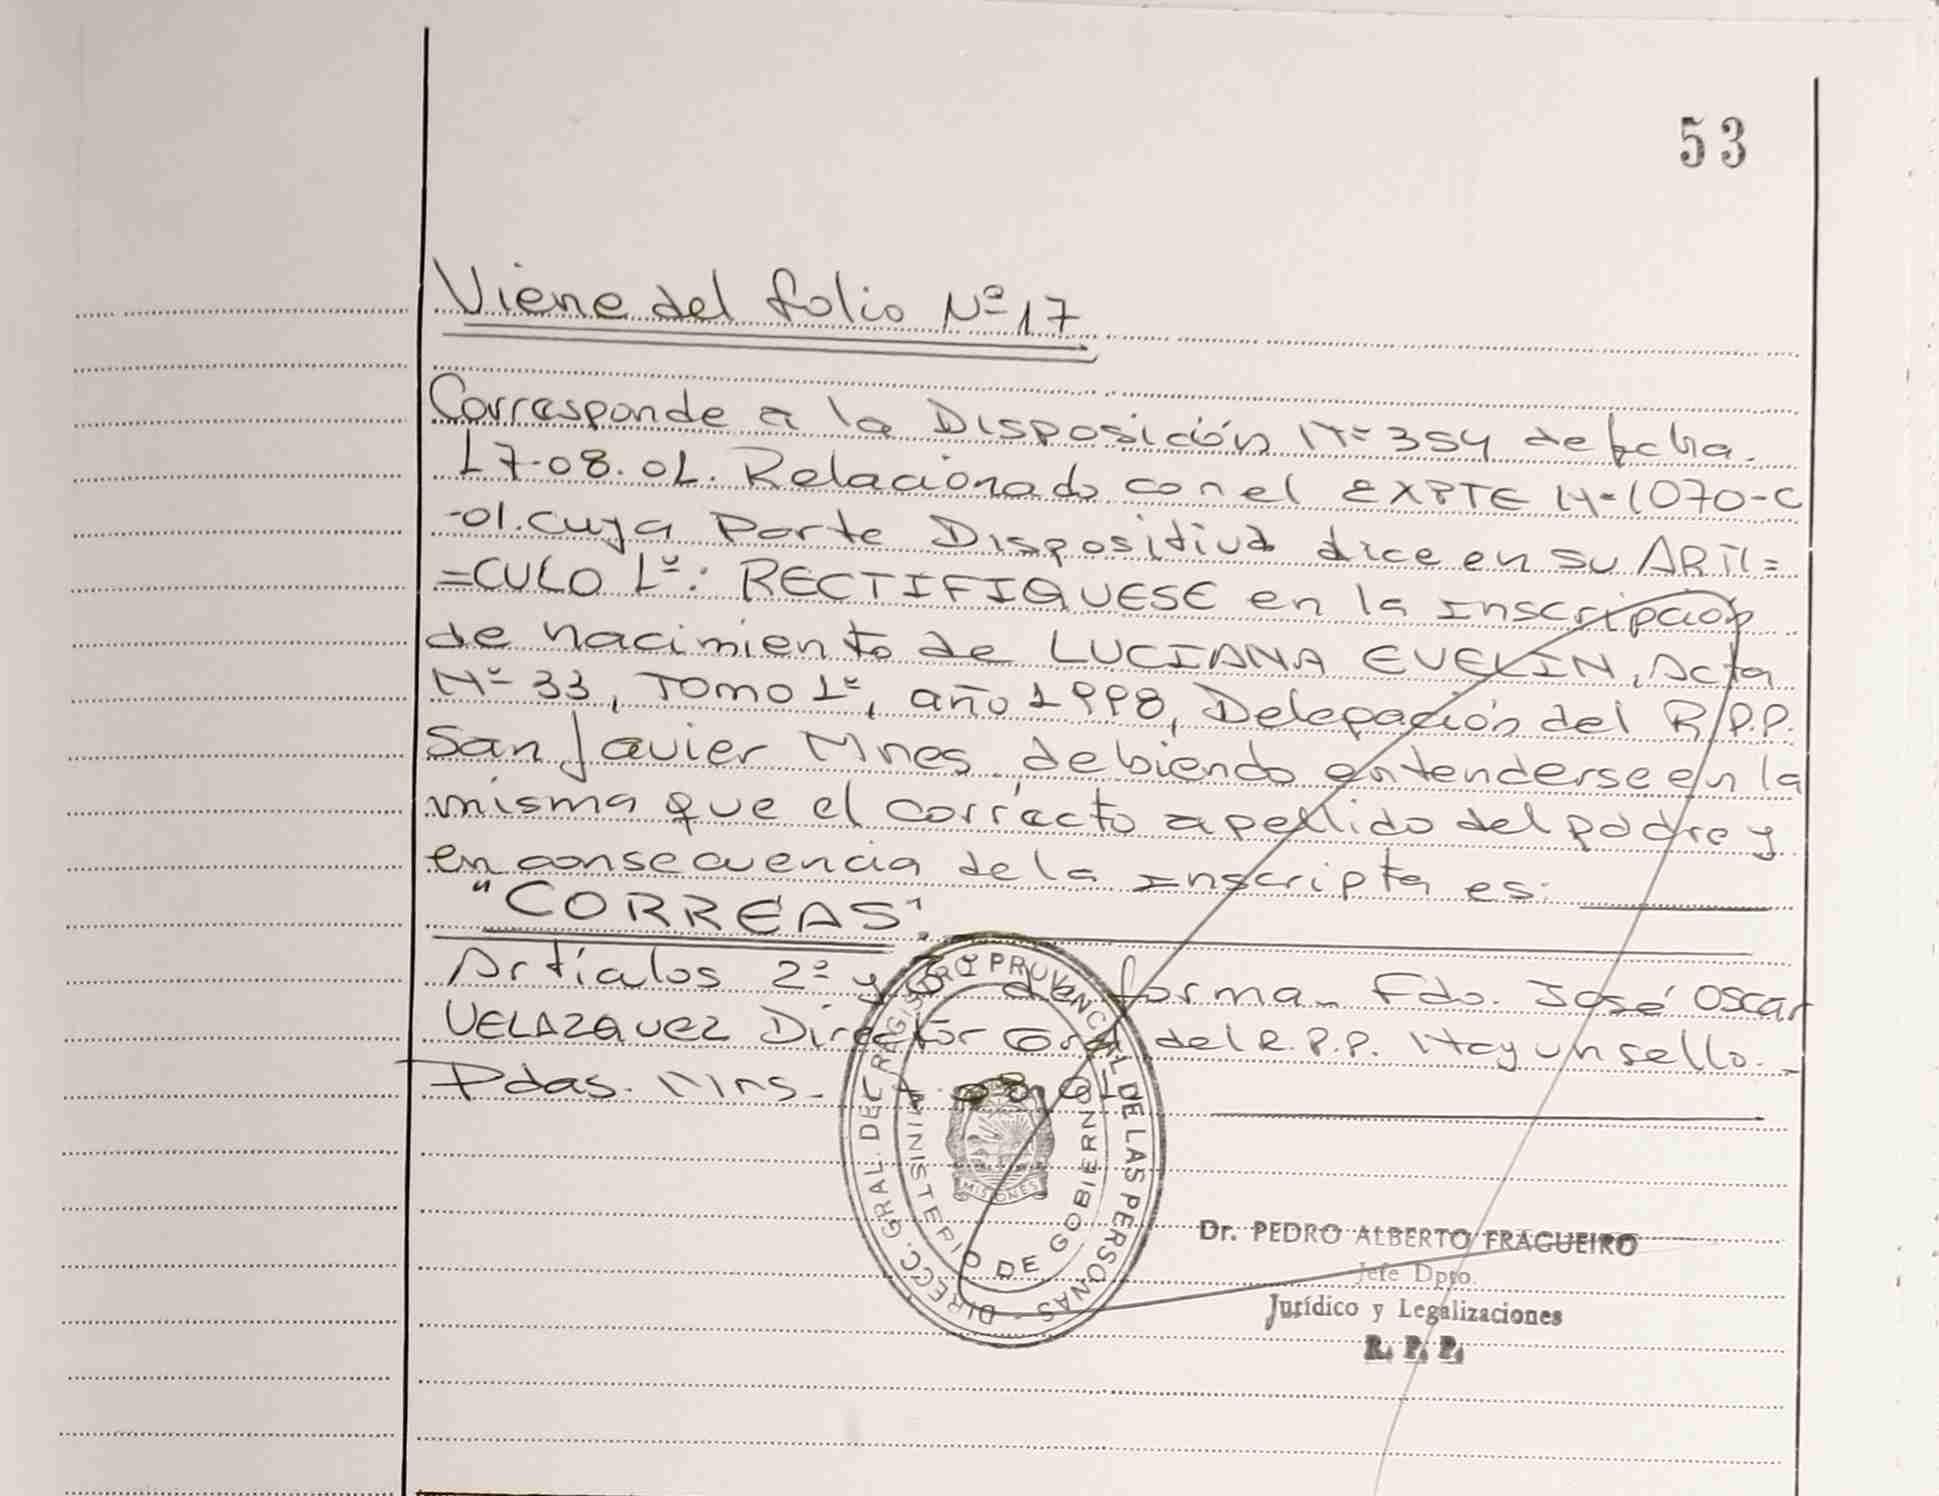 53
Viene del folio Nº 17
Corresponde a la Disposición Nº 354 de fecha
17-08-01. Relacionado con el EXPTE Nº 1070-C
-01. cuya Parte Dispositiva dice en su ARTI=
=CULO 1º: RECTIFIQUESE en la inscripción
de nacimiento de LUCIANA EVELIN, Acta
Nº 33, Tomo 1º, año 1998, Delegación del R.P.P.
San Javier Mnes, debiendo entenderse en la
misma que el correcto apellido del padre y
en consecuencia de la inscripta es:
"CORREAS".
Artículos 2º y 3º de forma. Fdo. José Oscar
VELAZQUEZ Director Gral del R.P.P. Hay un sello.
Pdas. Mns.
DIRECC. GRAL. DEL REGISTRO PROVINCIAL DE LAS PERSONAS
MINISTERIO DE GOBIERNO
MISIONES
Dr. PEDRO ALBERTO FRAGUEIRO
Jefe Dpto.
Jurídico y Legalizaciones
R. P. P.